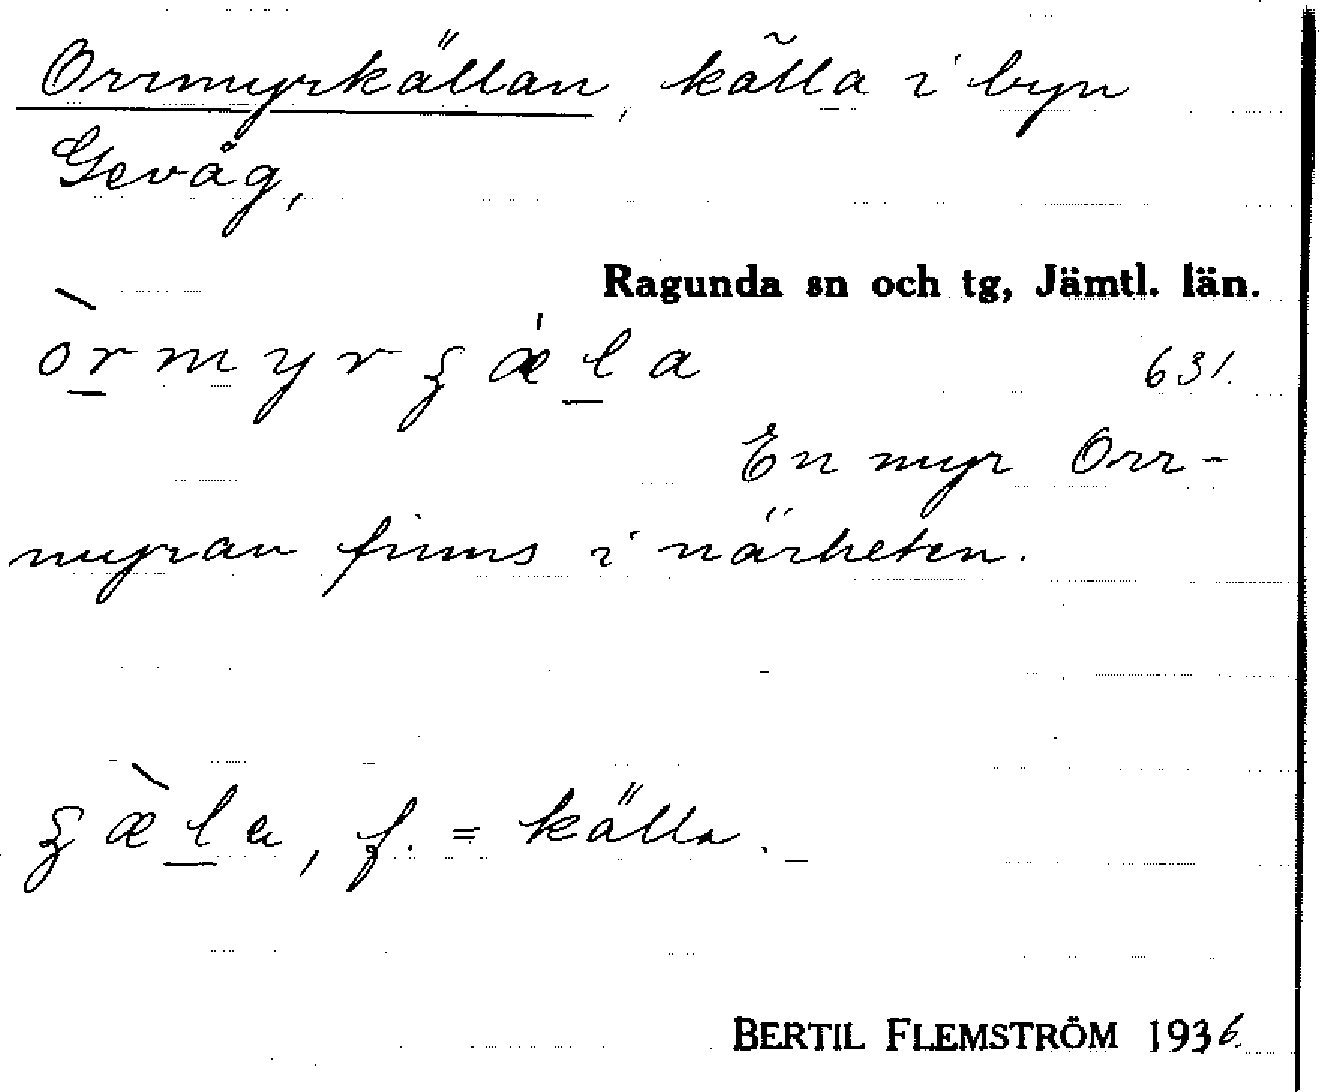 Orrmyrkällan, källa i byn
Gevåg,
Ragunda sn och tg, Jämtl. län.
òr̲myrʒǽl̲a 631.
En myr Orr-
myran finns i närheten.
ʒæ̀l̲a, f. = källa.
BERTIL FLEMSTRÖM 1936.